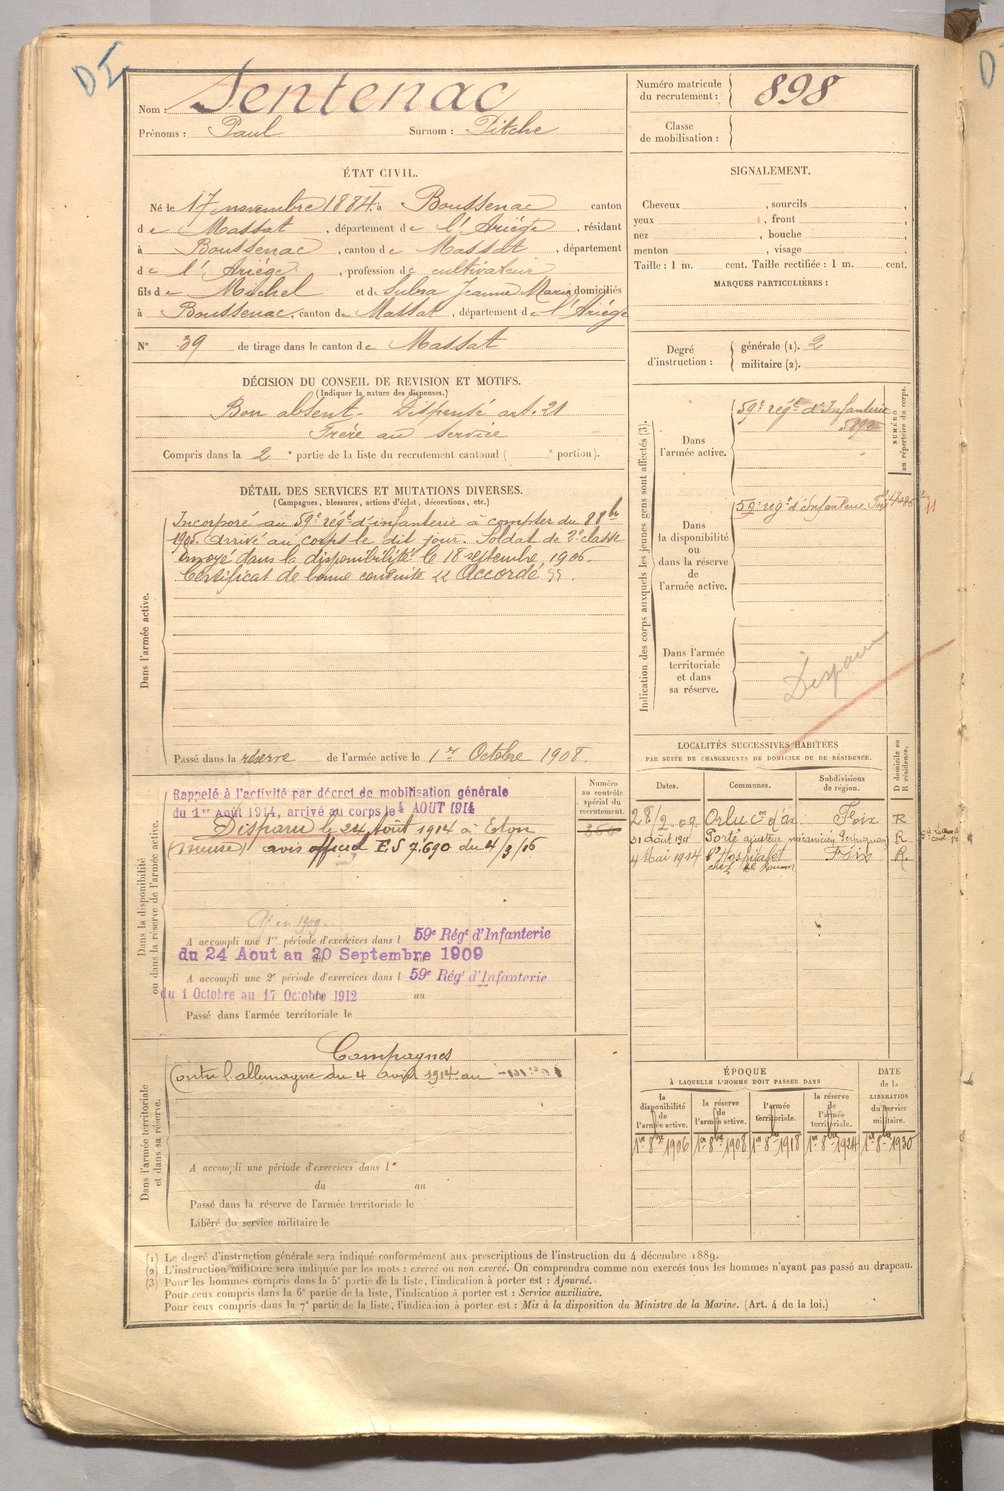 DI
Nom : Sentenac
Prénoms : Paul Surnom : Pitche
Numéro matricule du recrutement : 898
Classe de mobilisation :
ÉTAT CIVIL.
Né le 17 novembre 1884 à Boussenac canton
de Massat, département de l'Ariège, résidant
à Boussenac, canton de Massat, département
de l'Ariège, profession de cultivateur
fils de Michel et de Subra Jeanne Marie domiciliés
à Boussenac, canton de Massat, département de l'Ariège
N° 39 de tirage dans le canton de Massat
SIGNALEMENT.
Cheveux , sourcils ,
yeux , front ,
nez , bouche ,
menton , visage .
Taille : 1 m. cent. Taille rectifiée : 1 m. cent.
MARQUES PARTICULIÈRES :
Degré d'instruction : générale (1). 2
militaire (2).
DÉCISION DU CONSEIL DE REVISION ET MOTIFS.
(Indiquer la nature des dispenses.)
Bon absent. Dispensé art. 21
Frère au service
Compris dans la 2e partie de la liste du recrutement cantonal ( e portion).
DÉTAIL DES SERVICES ET MUTATIONS DIVERSES.
(Campagnes, blessures, actions d'éclat, décorations, etc.)
Dans l'armée active.
Incorporé au 59e régt d'infanterie à compter du 8 8bre
1905. Arrivé au corps le dit jour. Soldat de 2e classe
envoyé dans la disponibilité le 18 septembre 1906.
Certificat de bonne conduite « Accordé ».
Passé dans la réserve de l'armée active le 1er Octobre 1908.
Indication des corps auxquels les jeunes gens sont affectés (3).
NUMÉRO au répertoire du corps.
Dans l'armée active.
59e régt d'Infanterie
Dans la disponibilité ou dans la réserve de l'armée active.
59e régt d'Infanterie
Dans l'armée territoriale et dans sa réserve.
Disparu
LOCALITÉS SUCCESSIVES HABITÉES
PAR SUITE DE CHANGEMENTS DE DOMICILE OU DE RÉSIDENCE.
Dates. Communes. Subdivisions de région. D domicile ou R résidence.
28/2.09 Orlu con d'ax Foix R
31 août 1911 Porté ajusteur mécanicien Perpignan R
4 Mai 1914 l'Hospitalet Foix R
Dans la disponibilité ou dans la réserve de l'armée active.
Numéro au contrôle spécial du recrutement.
Rappelé à l'activité par décret de mobilisation générale
du 1er Août 1914, arrivé au corps le 4 AOUT 1914
Disparu le 24 Août 1914 à Eton
(Meuse) avis officiel ES 7.690 du 4/3/16
A accompli une 1re période d'exercices dans l 59e Régt d'Infanterie
du 24 Aout au 20 Septembre 1909
A accompli une 2e période d'exercices dans l 59e Régt d'Infanterie
du 1 Octobre au 17 Octobre 1912 au
Passé dans l'armée territoriale le
Dans l'armée territoriale et dans sa réserve.
Campagnes
Contre l'allemagne du 4 août 1914 au
A accompli une période d'exercices dans l
du au
Passé dans la réserve de l'armée territoriale le
Libéré du service militaire le
ÉPOQUE
À LAQUELLE L'HOMME DOIT PASSER DANS
la disponibilité de l'armée active. la réserve de l'armée active. l'armée territoriale. la réserve de l'armée territoriale. DATE de la LIBÉRATION du service militaire.
1er 8bre 1906 1er 8bre 1908 1er 8bre 1918 1er 8bre 1924 1er 8bre 1930
(1) Le degré d'instruction générale sera indiqué conformément aux prescriptions de l'instruction du 4 décembre 1889.
(2) L'instruction militaire sera indiquée par les mots : exercé ou non exercé. On comprendra comme non exercés tous les hommes n'ayant pas passé au drapeau.
(3) Pour les hommes compris dans la 5e partie de la liste, l'indication à porter est : Ajourné.
Pour ceux compris dans la 6e partie de la liste, l'indication à porter est : Service auxiliaire.
Pour ceux compris dans la 7e partie de la liste, l'indication à porter est : Mis à la disposition du Ministre de la Marine. (Art. 4 de la loi.)